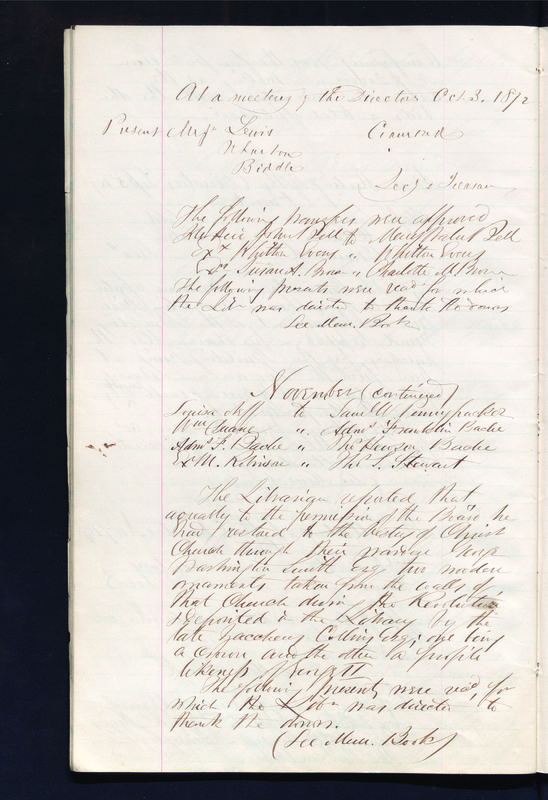 At a meeting of the Directors Oct. 3. 1872
Present Messrs Lewis
Wharton
Biddle
Secy & Treasr
The following transfers were approved
to Mary
Exr Whitton Evens " Whitton Evens
Exr Susan A. " Charlotte M.
The following presents were recd for which
the Libn was directed to thank the donors
See Mem. Book
November (continued)
Louisa to Saml W. Pennypacker
Wm Duane " Adms Franklin Bache
Adms F. Bache " Thos Hewson Bache
Ex M. Robinson " Thos S. Stewart
The Librarian reported that
agreeably to the permission of the Board he
had restored to the vestry of Christ
Church through their warden
Washington Smith esq. two wooden
ornaments taken from the walls of
that Church during the Revolution
& deposited in the Library by the
late Zaccheus Collins esq; one being
a crown and the other a profile
likeness of
The following presents were recd, for
which the Libn was directed to
thank the donors.
(See Mem. Book)